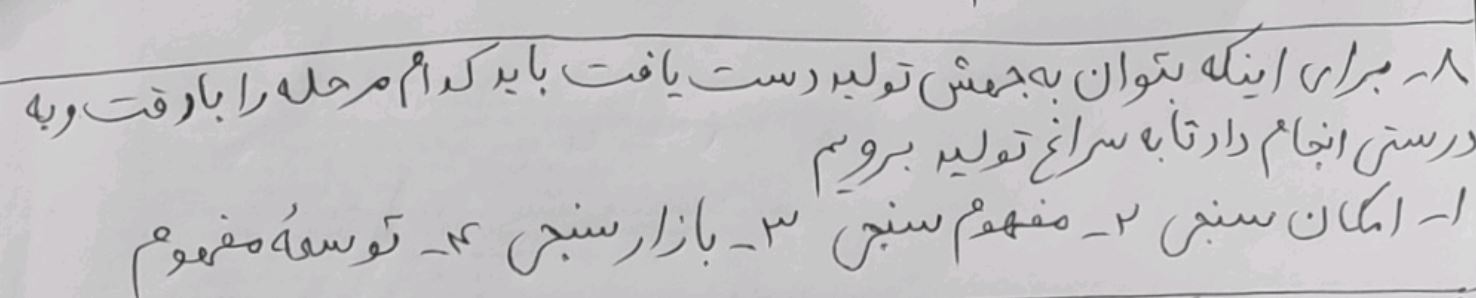 ۸- برای اینکه بتوان به جهش تولید دست یافت باید کدام مرحله را با دقت و به
درستی انجام داد تا به سراغ تولید برویم
۱- امکان سنجی ۲- مفهوم سنجی ۳- بازار سنجی ۴- توسعهٔ مفهوم